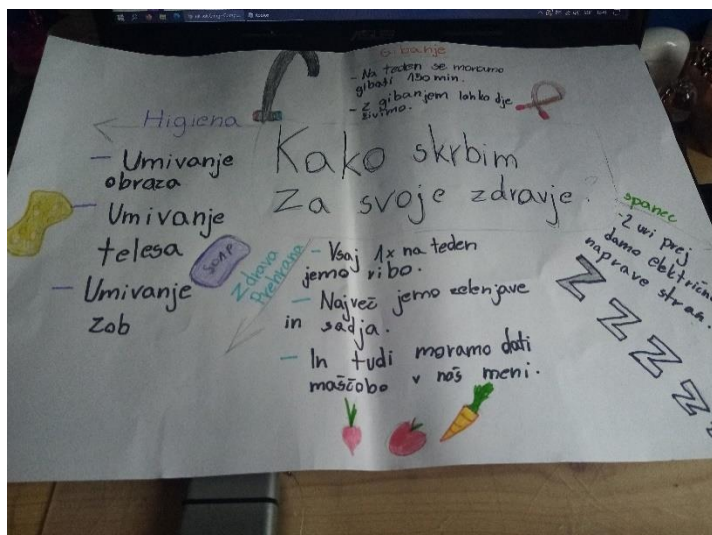 Gibanje
- Na teden se moramo
gibati 150 min.
- Z gibanjem lahko dje
živimo.
Higiena
- Umivanje
obraza
- Umivanje
telesa
- Umivanje
zob
SOAP
Kako skrbim
za svoje zdravje?
Zdrava
Prehrana
- Vsaj 1x na teden
jemo ribo.
- Največ jemo zelenjave
in sadja.
- In tudi moramo dati
maščobo v naš meni.
spanec
- 2 uri prej
damo elektične
naprave stran.
Z Z Z Z Z